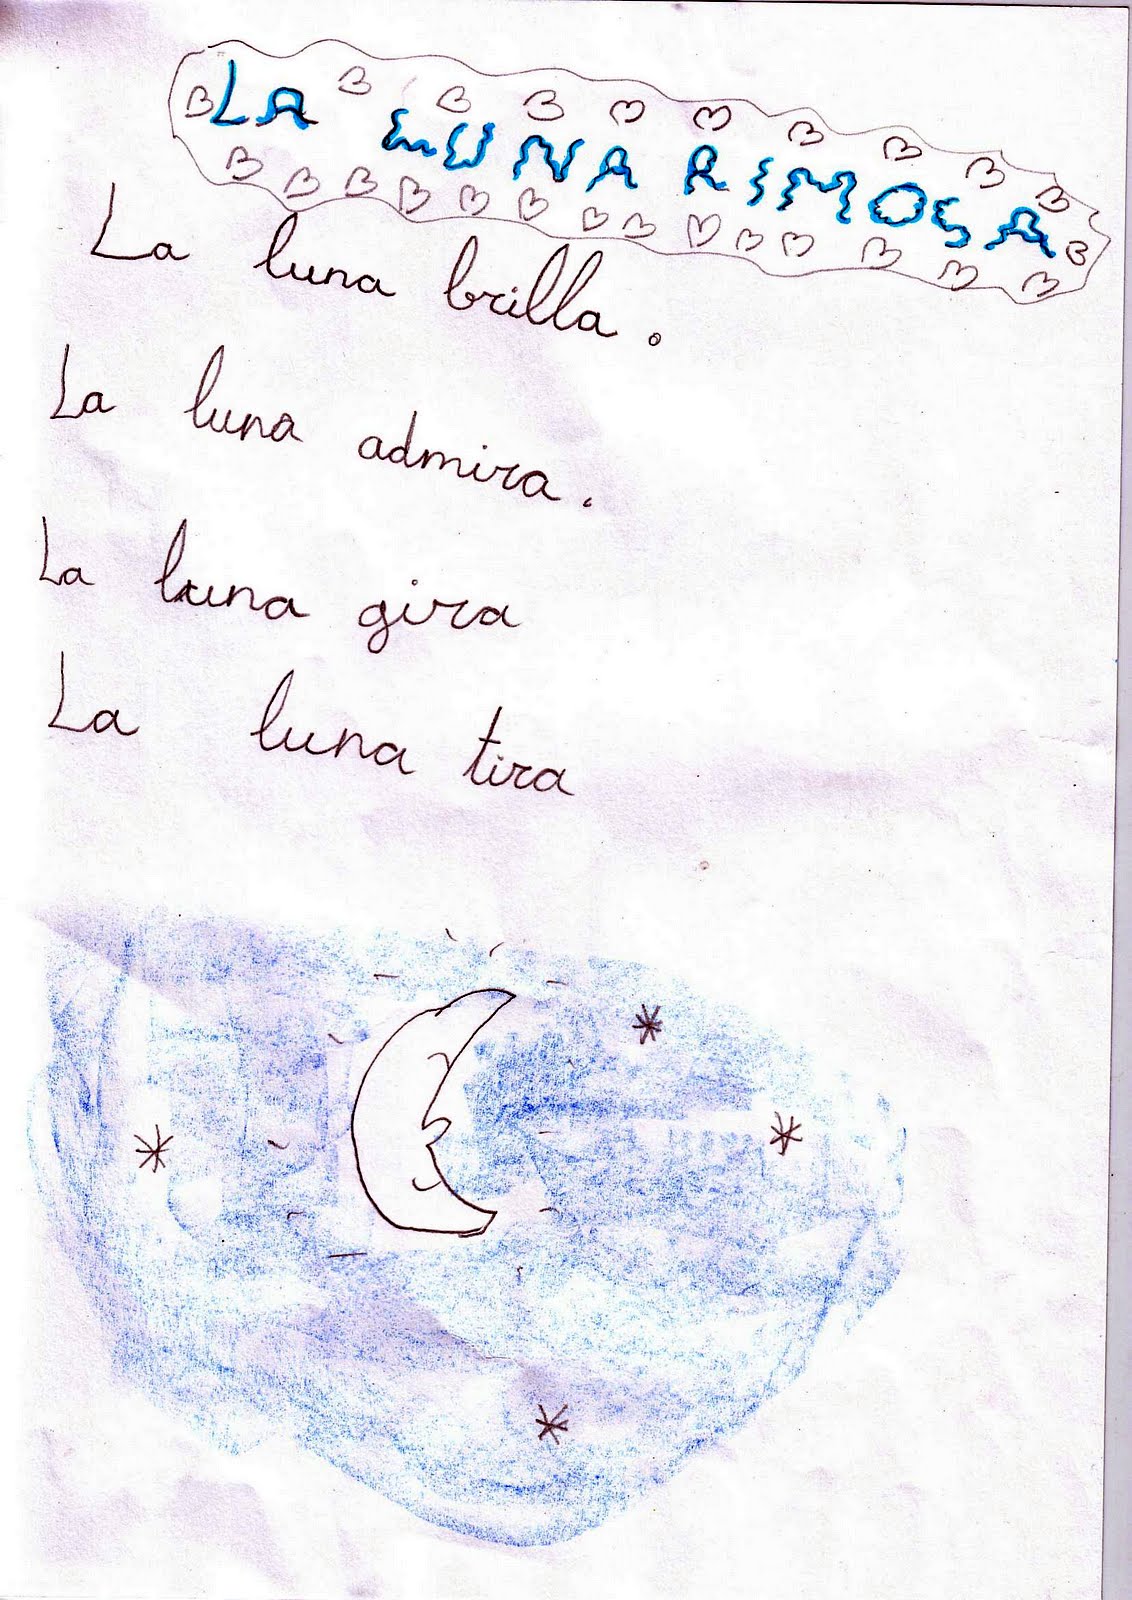 LA LUNA RIMOSA
La luna brilla.
La luna admira.
La luna gira
La luna tira